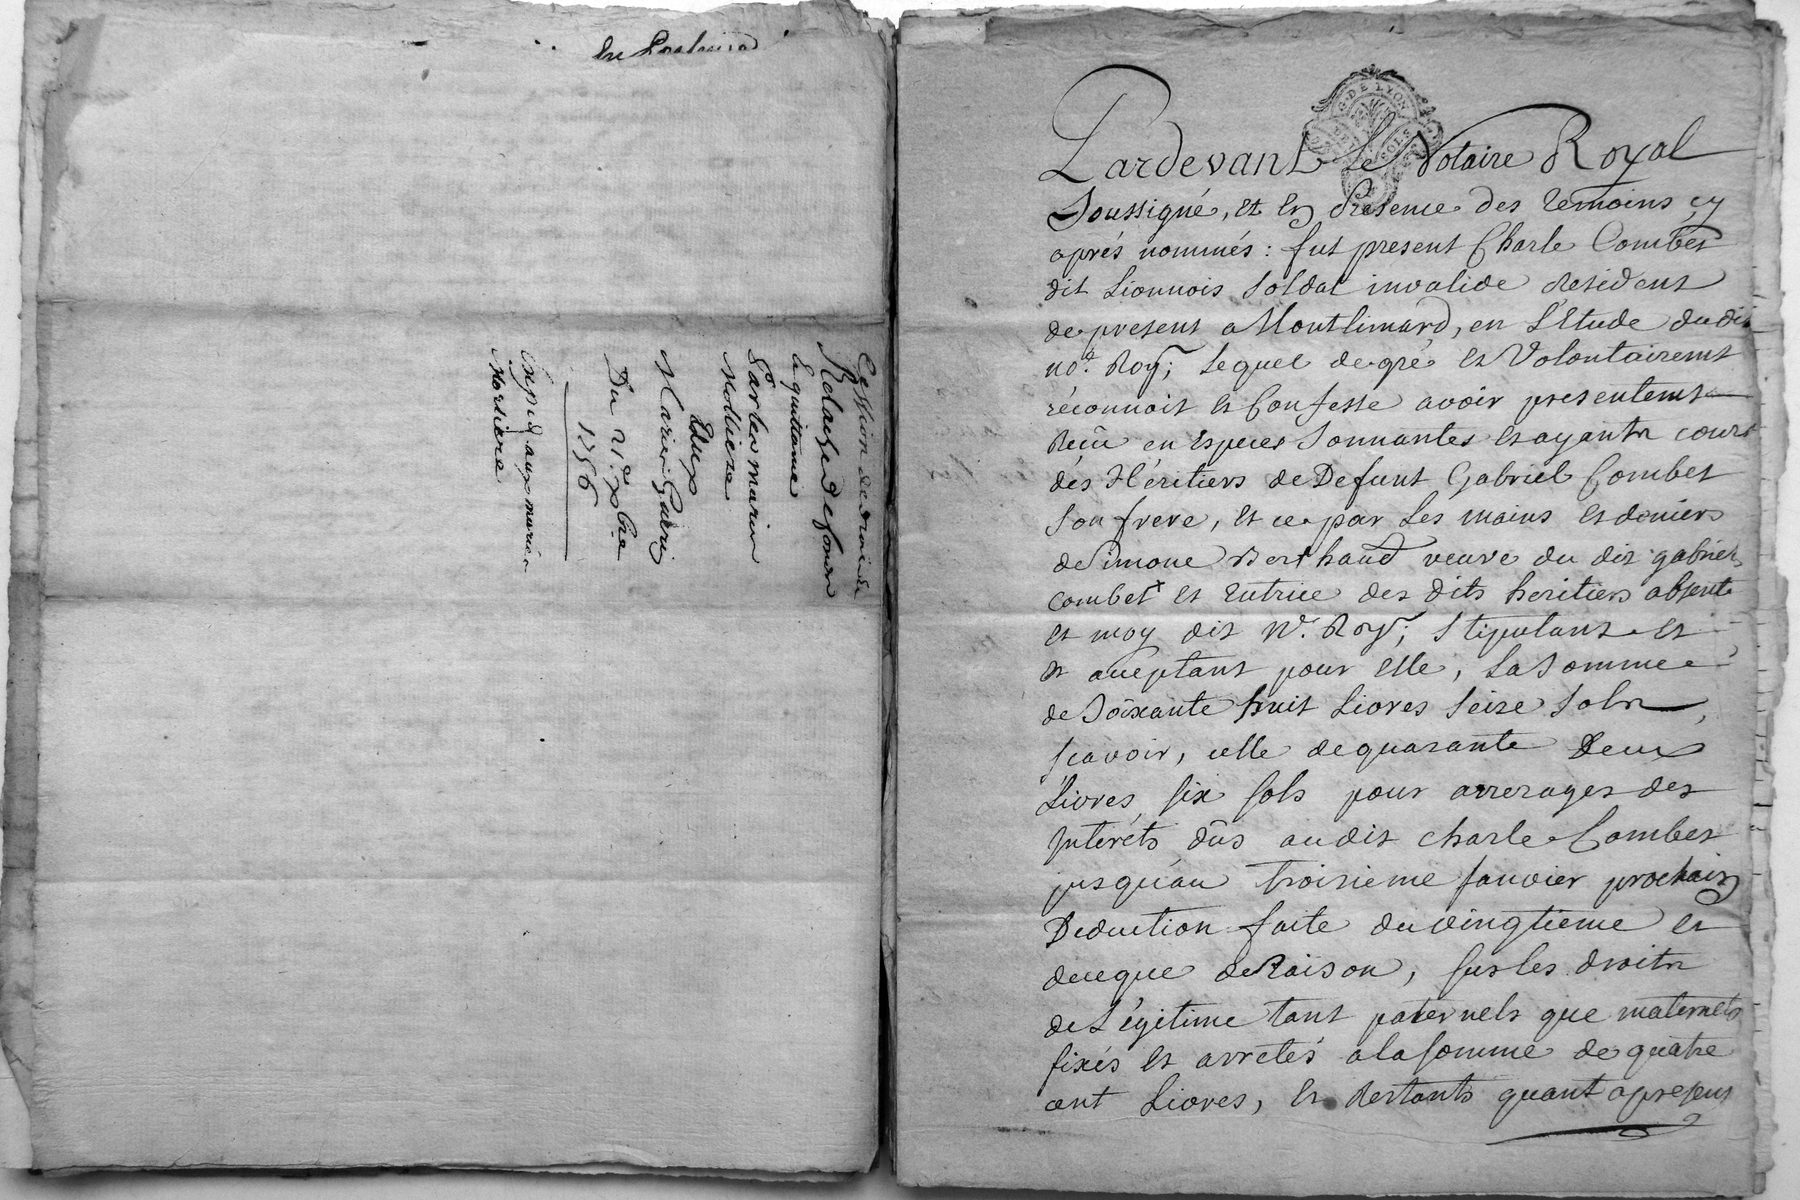 Cession de droits
Relache de fonds
& quittance
Par les mariés
Molliere
Aux
Mariés Garri
Du 21e xbre
1786
Expiée aux mariés
Morliere
G. DE LYON
SOLS
Pardevant le Notaire Royal
Soussigné, et en presence des temoins cy
aprés nommés : fut present Charle Combet
dit Lionnois Soldat invalide resident
de present a Montlimard, en L'Etude du dit
no.e Roy; Lequel de gré et Volontairemt
réconnoit et Confesse avoir presentemt
Reçu en Especes Sonnantes et ayants cours
dés Héritiers de Defunt Gabriel Combet
Son frere, et ce par Les mains et deniers
de Simone Berthaud veuve du dit gabriel
Combet et tutrice des dits heritiers absente
et moy dit No. Roy; Stipulant et
et aceptant pour Elle, La Somme
de Soixante huit Livres Seize Sols,
Scavoir, celle de quarante Deux
Livres six sols pour arrerages des
Interéts dûs audit Charle Combet
jusqu'au troisieme Janvier prochain
Deduction faite du vingtieme et
de ce que de Raison, sur les droits
de Légitime tant paternels que maternels
fixés et arretés a la somme de quatre
cent Livres, et Restants quant apresent